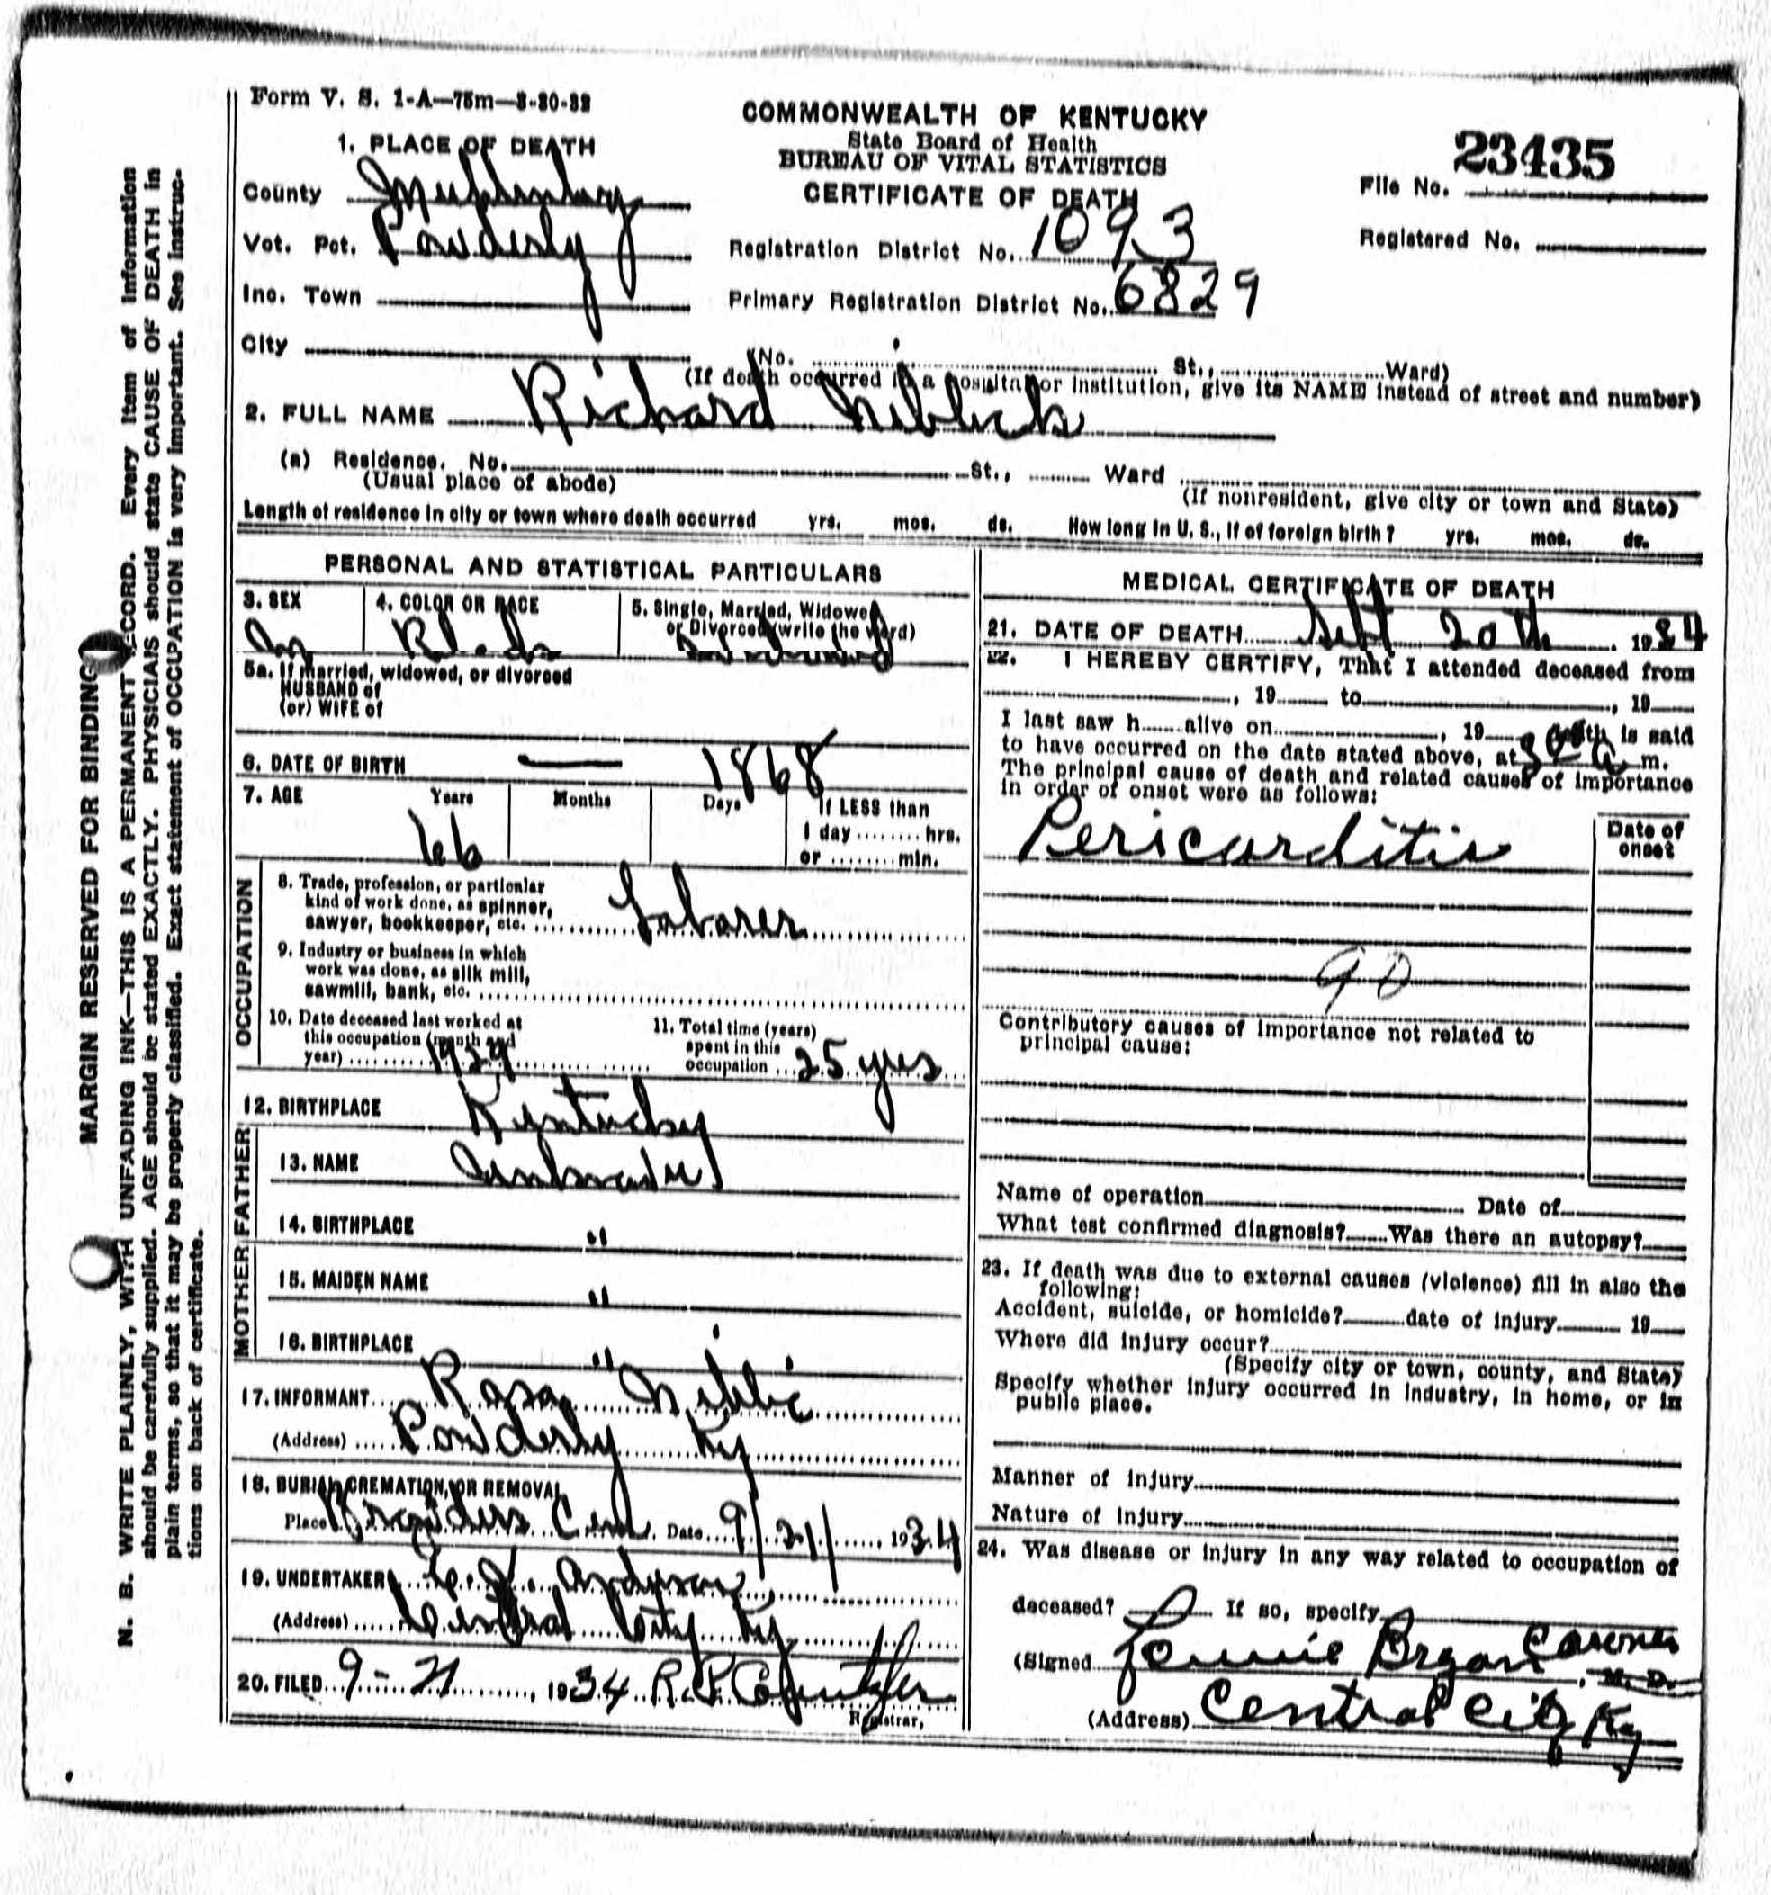 Form V. S. 1-A—75m—8-30-32
COMMONWEALTH OF KENTUCKY
State Board of Health
BUREAU OF VITAL STATISTICS
CERTIFICATE OF DEATH
23435
File No.
Registered No.
1. PLACE OF DEATH
County Muhlenberg
Vot. Pct. Powderly
Inc. Town
City
Registration District No. 1093
Primary Registration District No. 6829
(No. St., Ward)
(If death occurred in a hospital or institution, give its NAME instead of street and number)
2. FULL NAME Richard
(a) Residence. No. St., Ward
(Usual place of abode)
(If nonresident, give city or town and State)
Length of residence in city or town where death occurred yrs. mos. ds. How long in U. S., if of foreign birth? yrs. mos. ds.
PERSONAL AND STATISTICAL PARTICULARS
3. SEX
M
4. COLOR OR RACE
Black
5. Single, Married, Widowed
or Divorced (write the word)
5a. If married, widowed, or divorced
HUSBAND of
(or) WIFE of
6. DATE OF BIRTH — 1868
7. AGE Years Months Days If LESS than
1 day ........ hrs.
or ........ min.
66
OCCUPATION
8. Trade, profession, or particular
kind of work done, as spinner,
sawyer, bookkeeper, etc. Laborer
9. Industry or business in which
work was done, as silk mill,
sawmill, bank, etc.
10. Date deceased last worked at
this occupation (month and
year) 1929
11. Total time (years)
spent in this
occupation 25 yrs
12. BIRTHPLACE Kentucky
FATHER
13. NAME
14. BIRTHPLACE "
MOTHER
15. MAIDEN NAME "
16. BIRTHPLACE "
17. INFORMANT Rosa
(Address) Powderly Ky
18. BURIAL, CREMATION, OR REMOVAL
Place Cem. Date 9/21/ 1934
19. UNDERTAKER
(Address) Central City Ky
20. FILED 9-21, 1934 R. P.
Registrar.
MEDICAL CERTIFICATE OF DEATH
21. DATE OF DEATH Sept 20th, 1934
22. I HEREBY CERTIFY, That I attended deceased from
, 19 to , 19
I last saw h alive on , 19 death is said
to have occurred on the date stated above, at m.
The principal cause of death and related causes of importance
in order of onset were as follows:
Date of
onset
Pericarditis
90
Contributory causes of importance not related to
principal cause:
Name of operation Date of
What test confirmed diagnosis? Was there an autopsy?
23. If death was due to external causes (violence) fill in also the
following:
Accident, suicide, or homicide? date of injury 19
Where did injury occur?
(Specify city or town, county, and State)
Specify whether injury occurred in industry, in home, or in
public place.
Manner of injury
Nature of injury
24. Was disease or injury in any way related to occupation of
deceased? If so, specify
(Signed Bryan Coroner, M. D.
(Address) Central City Ky
MARGIN RESERVED FOR BINDING
N. B. WRITE PLAINLY, WITH UNFADING INK—THIS IS A PERMANENT RECORD. Every item of information
should be carefully supplied. AGE should be stated EXACTLY. PHYSICIAIS should state CAUSE OF DEATH in
plain terms, so that it may be properly classified. Exact statement of OCCUPATION is very important. See instruc-
tions on back of certificate.